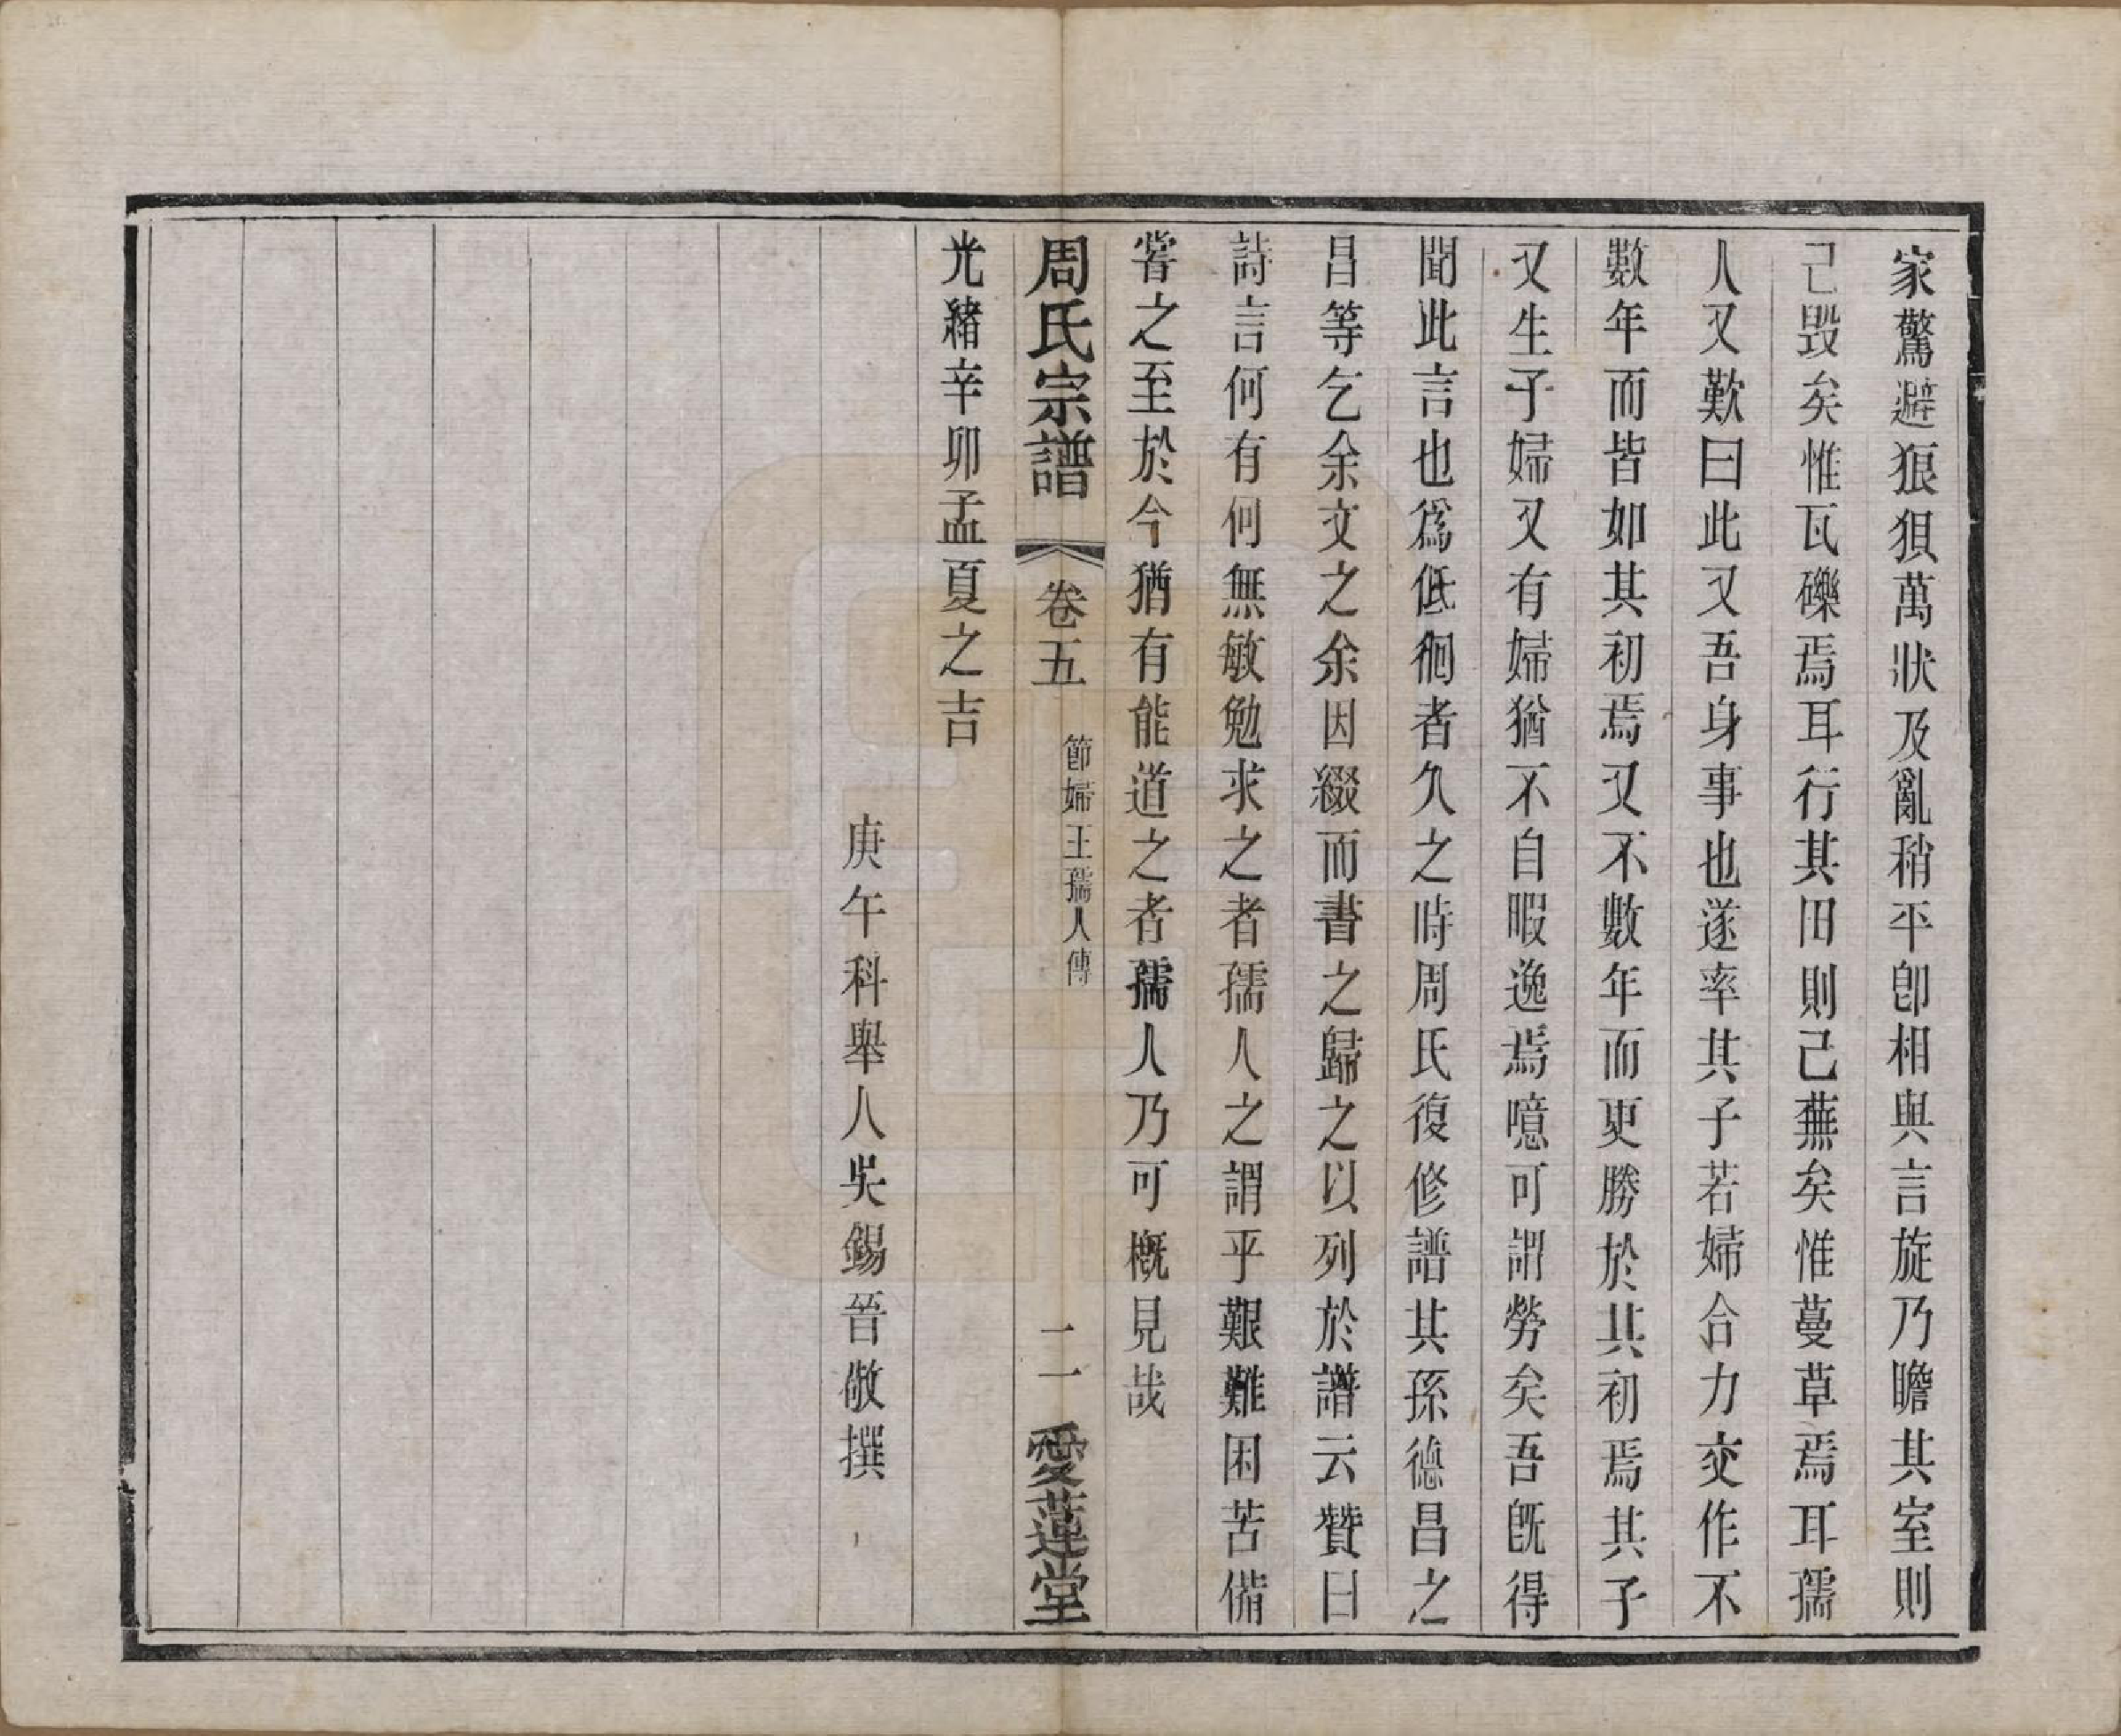 家驚避狼狽萬狀及亂稍平卽相與言旋乃瞻其室則
己毀矣惟瓦礫焉耳行其田則己蕪矣惟蔓草焉耳孺
人又歎曰此又吾身事也遂率其子若婦合力交作不
數年而皆如其初焉又不數年而更勝於其初焉其子
又生子婦又有婦猶不自暇逸焉噫可謂勞矣吾旣得
聞此言也爲低徊者久之時周氏復修譜其孫德昌之
昌等乞余文之余因綴而書之歸之以列於譜云贊曰
詩言何有何無敏勉求之者孺人之謂乎艱難困苦備
嘗之至於今猶有能道之者孺人乃可槪見哉
周氏宗譜 卷五 節婦王孺人傳 二一 愛蓮堂
光緒辛卯孟夏之吉
庚午科舉人吳錫晉敬撰